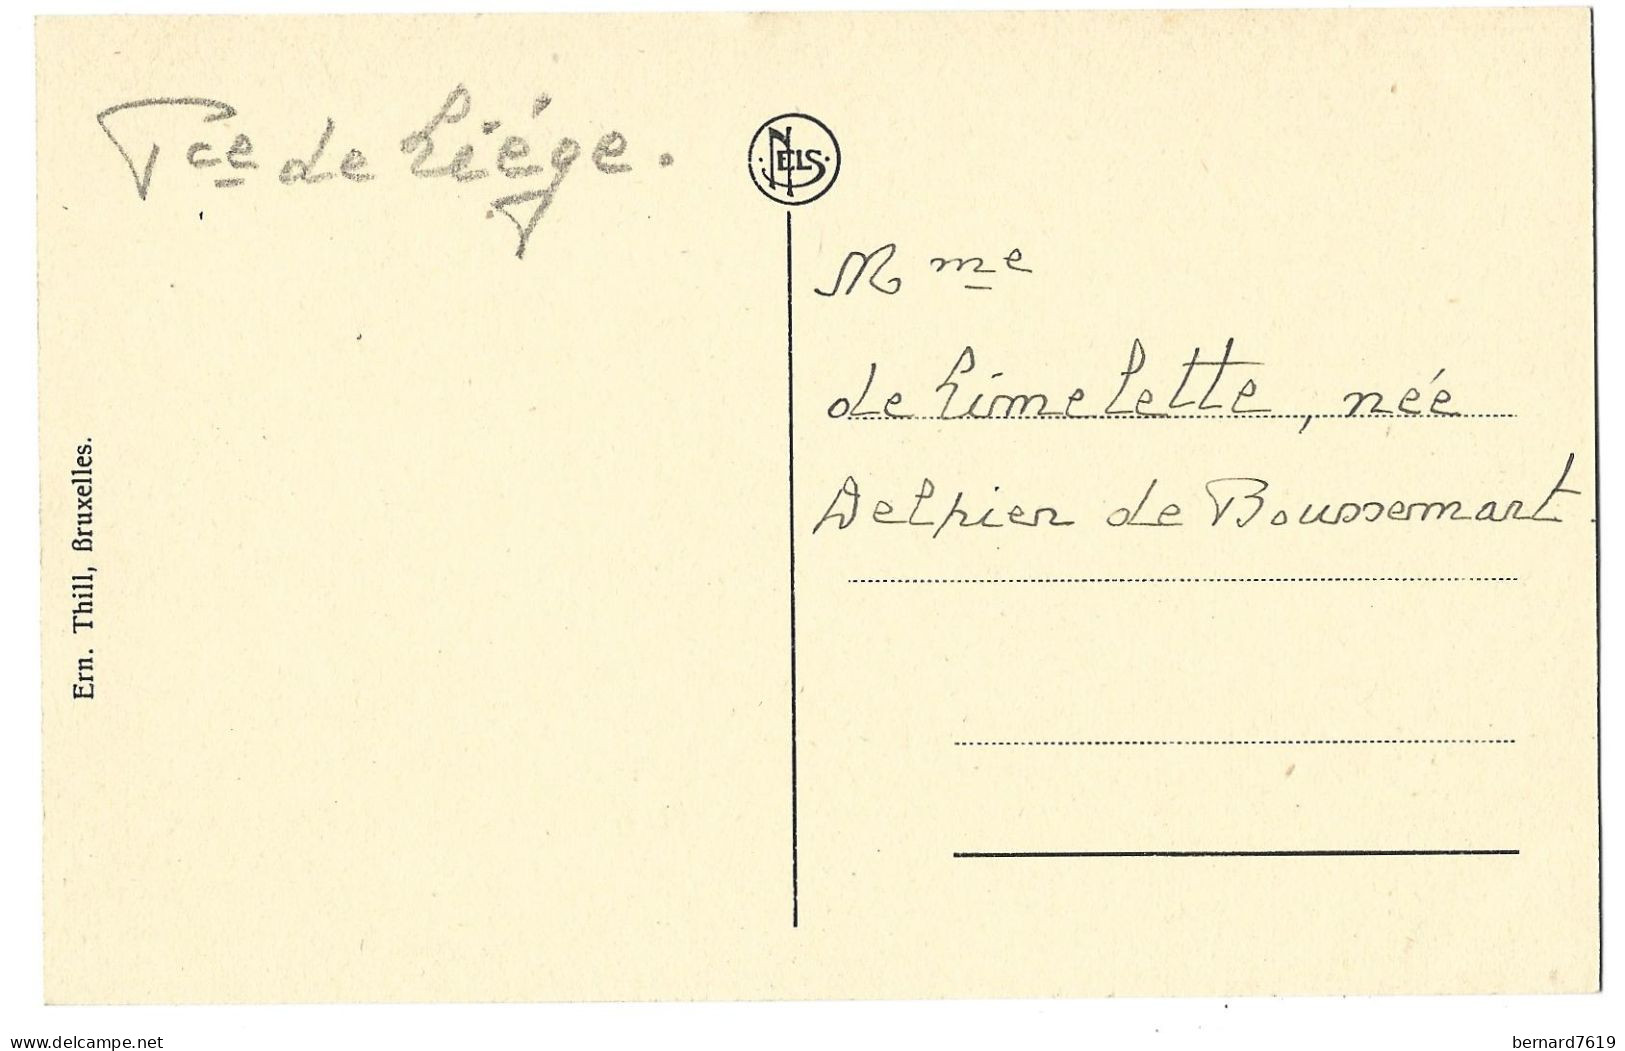 Pce de Liége.
NELS
Mme
de Limelette, née
Delpier de Boussemart.
Ern. Thill, Bruxelles.
www.delcampe.net
bernard7619